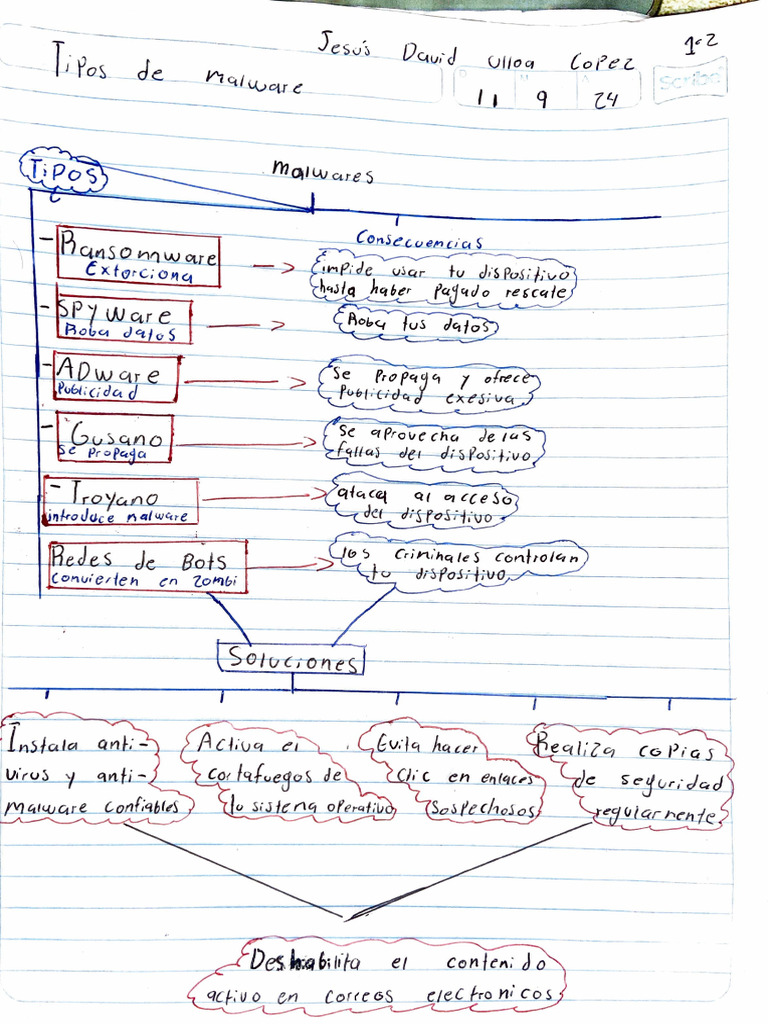 Jesús David Ulloa Lopez 1°2
Tipos de malware
D M A
11 9 24
Scribe
Tipos
Malwares
Consecuencias
- Ransomware
Extorciona
impide usar tu dispositivo
hasta haber pagado rescate
- SPYWare
Roba datos
Roba tus datos
- ADware
Publicidad
Se propaga y ofrece
Publicidad exesiva
- Gusano
se propaga
Se aprovecha de las
fallas del dispositivo
- Troyano
introduce malware
ataca al acceso
del dispositivo
Redes de Bots
convierten en zombi
los criminales controlan
tu dispositivo
Soluciones
Instala anti-
virus y anti-
malware confiables
Activa el
cortafuegos de
tu sistema operativo
Evita hacer
clic en enlaces
sospechosos
Realiza copias
de seguridad
regularmente
Deshabilita el contenido
activo en correos electronicos